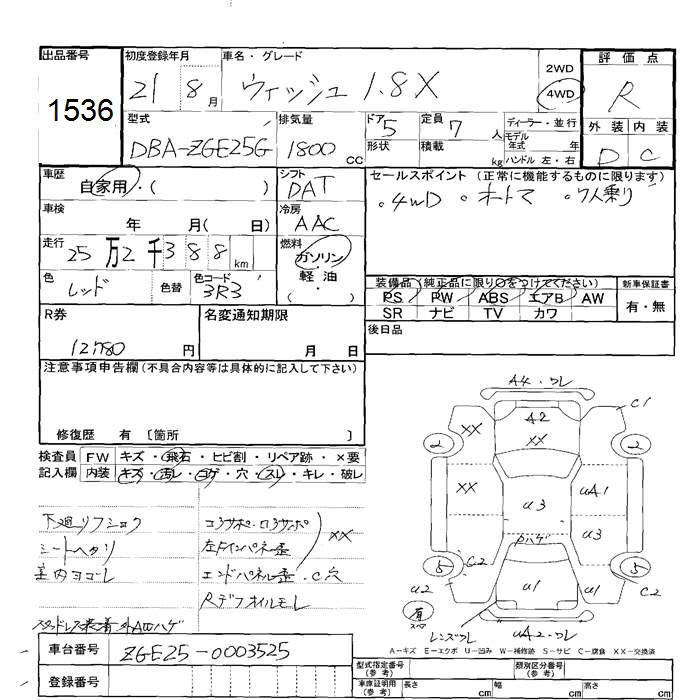 出品番号
1536
初度登録年月
21 8月
車名・グレード
ウィッシュ 1.8X
2WD
4WD
評価点
R
型式
DBA-ZGE25G
排気量
1800 CC
ドア 5
形状
定員 7 人
積載 kg
ディーラー・並行
モデル年式 年
ハンドル 左・右
外装 内装
D C
車歴
自家用・( )
シフト
DAT
セールスポイント(正常に機能するものに限ります)
。4WD 。オートマ 。7人乗り
車検
年 月( 日)
冷房
AAC
走行
25万2千388km
燃料
ガソリン・軽油・( )
色
レッド
色替
色コード
3R3
装備品(純正品に限り○をつけてください)
PS PW ABS エアB AW
SR ナビ TV カワ
新車保証書
有・無
R券
12,780円
名変通知期限
月 日
後日品
注意事項申告欄(不具合内容等は具体的に記入して下さい)
修復歴 有 〔箇所 〕
検査員記入欄
FW キズ・飛石・ヒビ割・リペア跡・×要
内装 キズ・汚レ・コゲ・穴・スレ・キレ・破レ
下廻リフショク
シートヘタリ
室内ヨゴレ
コアサポ・ロアサポ
左Fインパネ歪
XX
エンドパネル歪・C穴
Rデフオイルモレ
スタッドレス装着 外AWハゲ
A4・ワレ
C1
A2
XX
XX
2
2
XX
U3
UA1
U3
Fハゲ
C2
C2
5
5
U2
U1
U1
有
スペア
レンズワレ
UA2・ワレ
A－キズ E－エクボ U－凹み W－補修跡 S－サビ C－腐食 XX－交換済
車台番号
ZGE25-0003525
登録番号
型式指定番号(参考)
類別区分番号(参考)
車庫証明用(参考)
長さ cm
幅 cm
高さ cm